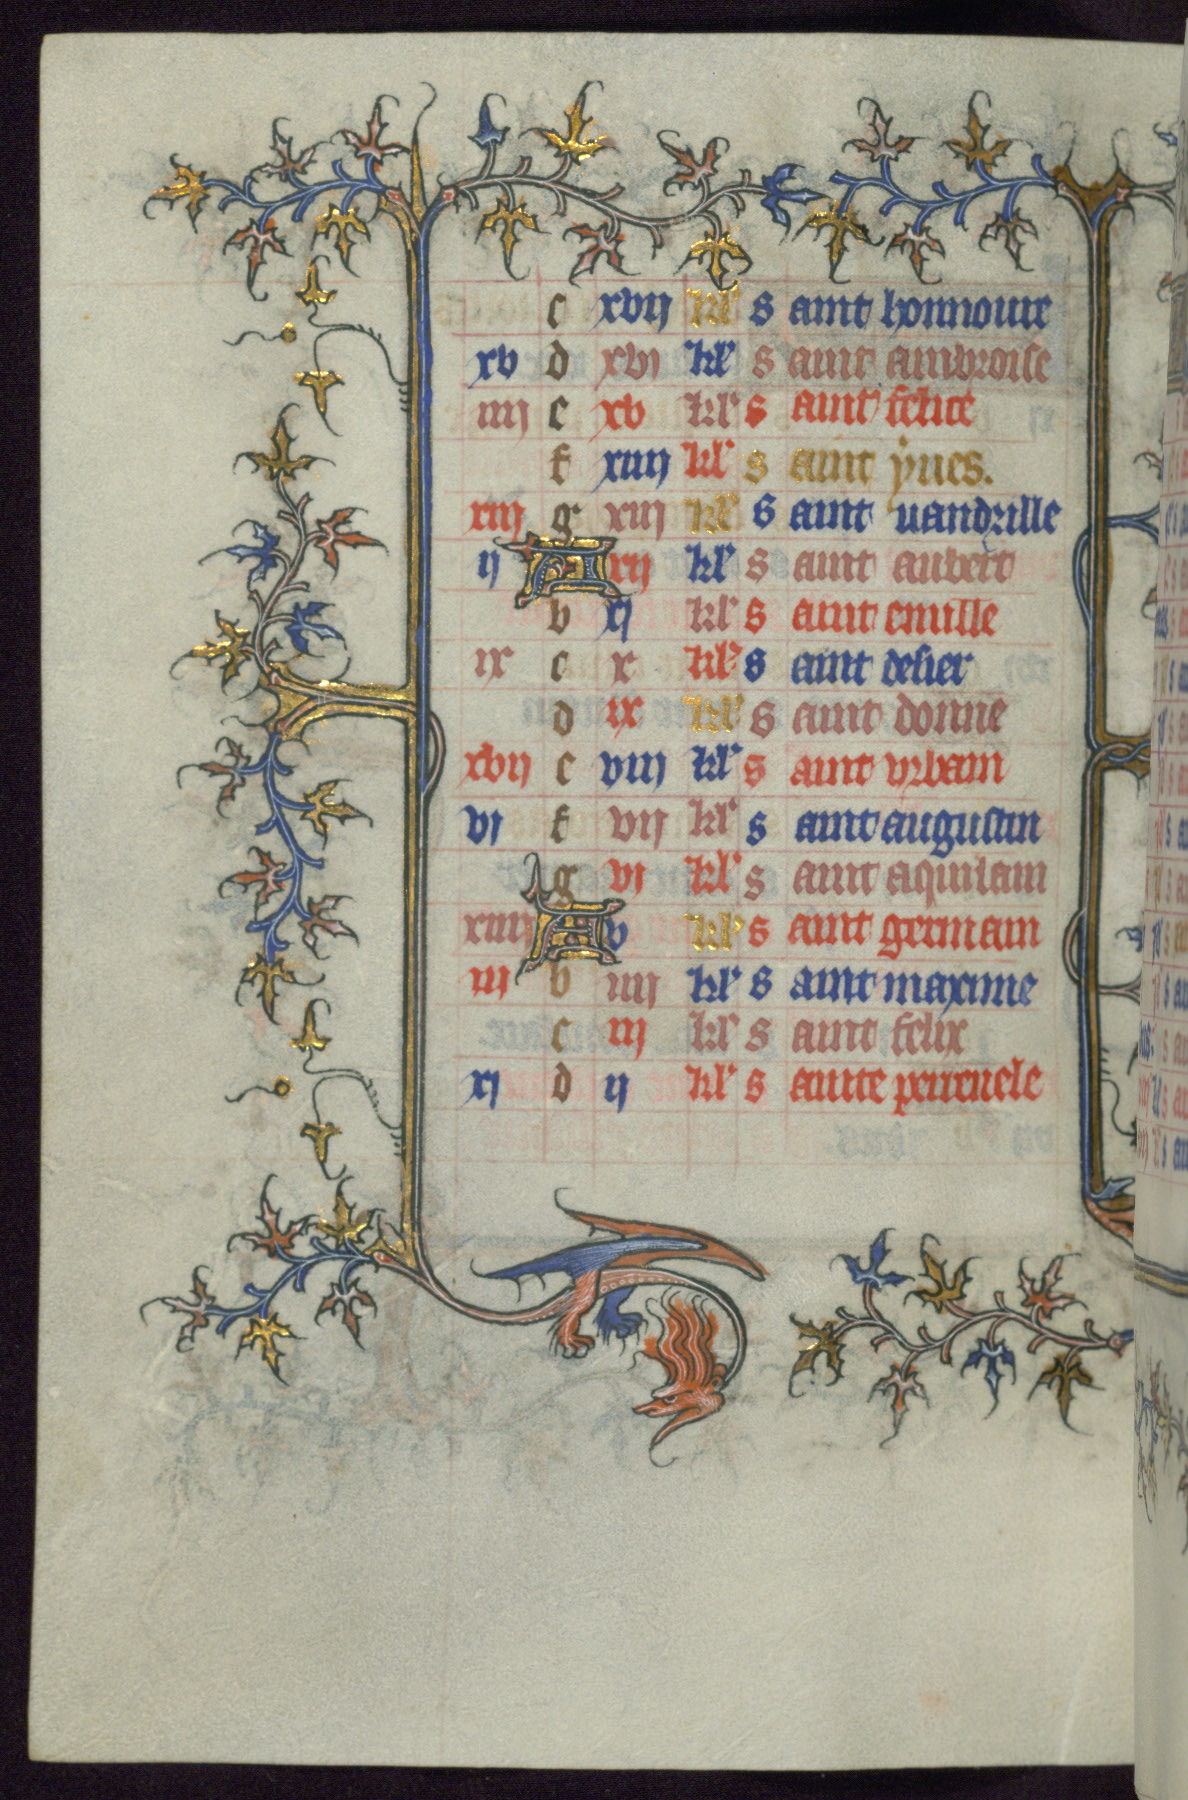 c xvij kl' s aint honnoure
xv d xvi kl' s aint ambroise
iiij e xv kl' s aint felice
f xiiij kl' s aint yues.
xiij g xiij kl' s aint uandrille
ij A xij kl' s aint aubert
b xj kl' s aint emille
ix c x kl' s aint desier
d ix kl' s aint donne
xvij e viij kl' s aint vrbain
vj f vij kl' s aint augustin
g vj kl' s aint aquilain
xiiij A v kl' s aint germain
iij b iiij kl' s aint maxime
c iij kl' s aint felix
xj d ij kl' s ainte perrenele